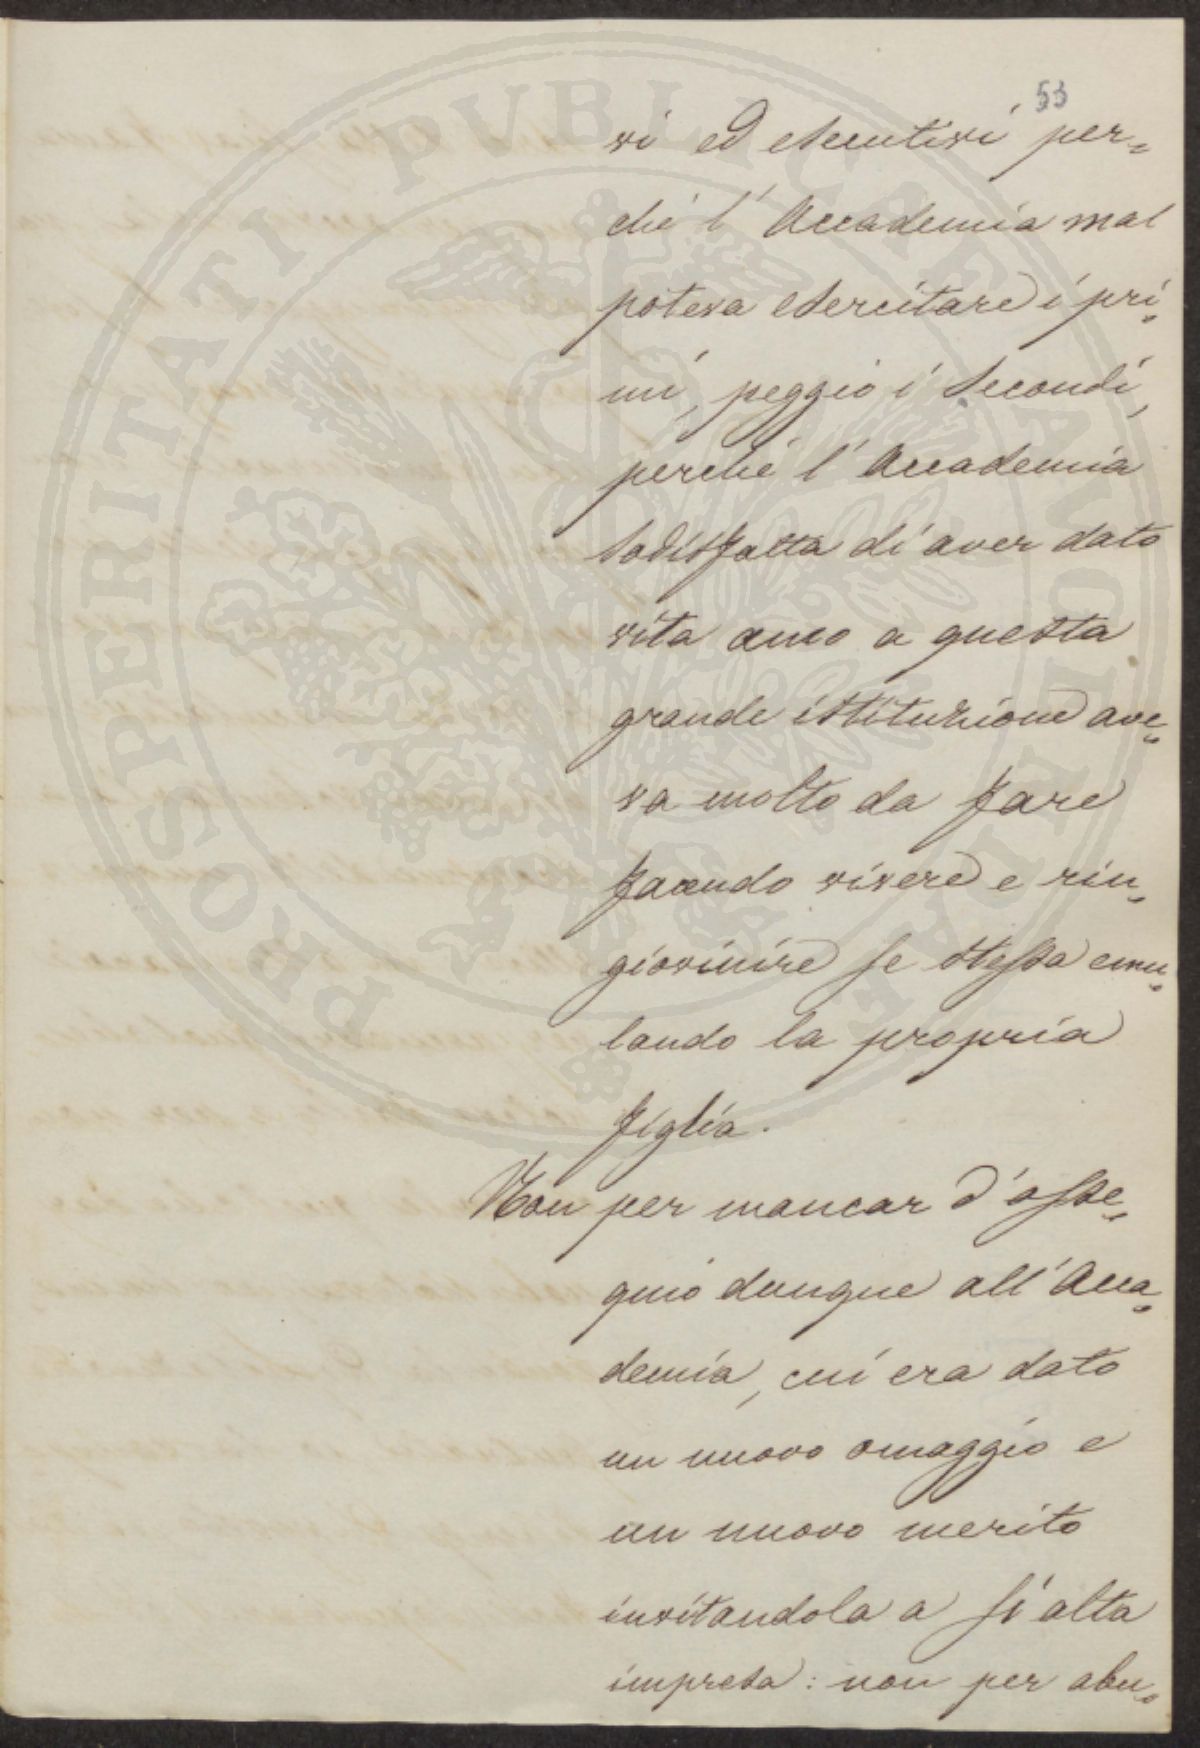 53
vi ed esecutivi per=
chè l'Accademia mal
poteva esercitare i pri=
mi, peggio i secondi,
perchè l'Accademia
sodisfatta di aver dato
vita anco a questa
grande istituzione ave=
va molto da fare
facendo vivere e rin=
giovinire se stessa emu=
lando la propria
figlia.
Non per mancar d'osse=
quio dunque all'Acca=
demia, cui era dato
un nuovo omaggio e
un nuovo merito
invitandola a sì alta
impresa: non per abu=
PROSPERITATI PVBLICAE AVGENDAE